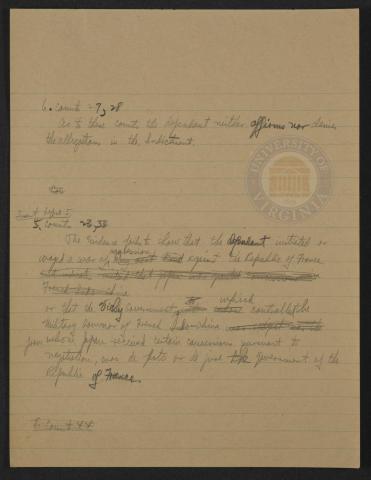 6. Counts 27, 28
As to these counts the defendant neither affirms nor denies
the allegations in the Indictment.
UNIVERSITY OF VIRGINIA
5. Counts 23, 33
The Evidence fails to show that the defendant initiated or
waged a war of aggression against the Republic of France
French Indo China
or that the Vichy Government which controlled the
Military Governor of French Indo-China
from whom Japan received certain concessions pursuant to
negotiation, was de facto or de jure the government of the
Republic of France.
6. Count 44